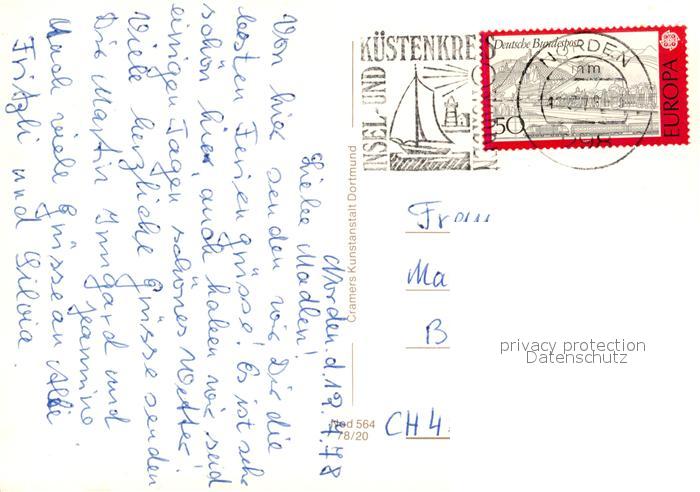 Norden, d. 19.7.78
Liebe Madlen!
Von hier senden wir Dir die
besten Feriengrüsse! Es ist sehr
schön hier, auch haben wir seid
einigen Tagen schönes Wetter.
Viele herzliche Grüsse senden
Dir Martin Irmgard und
Jeannine
Auch viele Grüsse an Alle
Fritzli und Silvia.
Cramers Kunstanstalt Dortmund
Nod 564
78/20
INSEL-UND
KÜSTENKREIS
NORDEN
Deutsche Bundespost
50
EUROPA
Frau
Ma
B
CH 4
privacy protection
Datenschutz